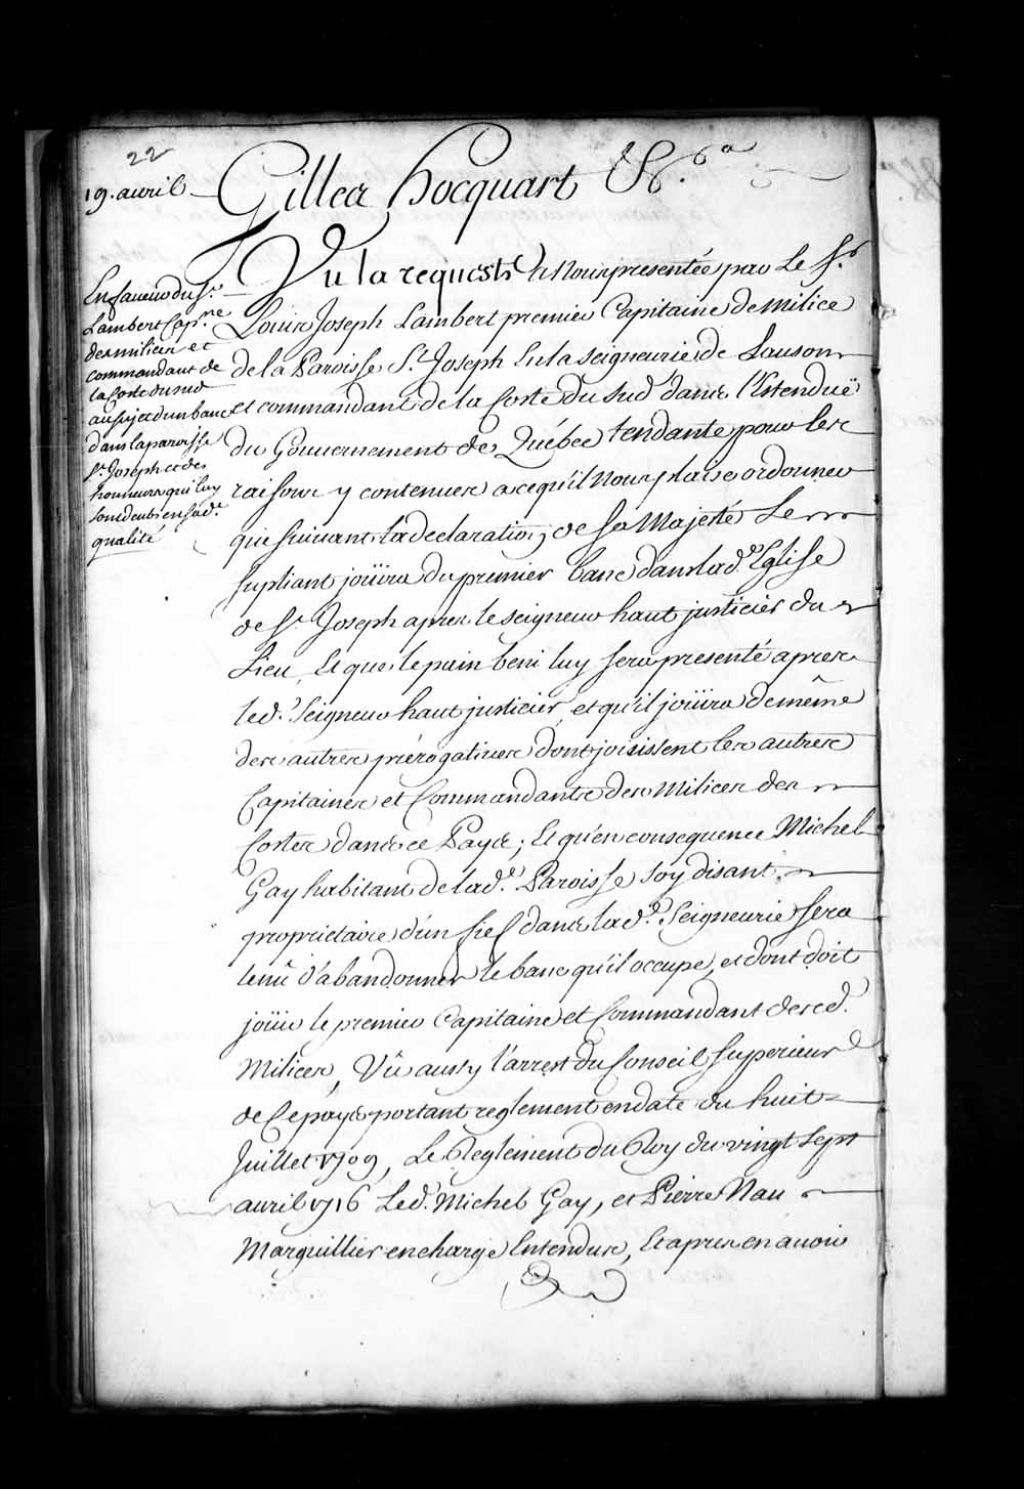 22
19. avril
Gilles hocquart &c.a
En faveur du Sr.
Lambert Cap.ne
des milices et
commandant de
la Coste du sud
au sujet d'un banc
dans la paroisse
St. Joseph et des
honneurs qui luy
sont deubs en sad.e
qualité
Vu la requeste a Nous presentée par Le Sr.
Louis Joseph Lambert premier Capitaine de milice
de la Paroisse St. Joseph En la seigneurie de Lauson
et commandant de la Coste du Sud dans l'Estenduë
du Gouvernement de Québec tendante pour les
raisons y contenues a ce qu'il Nous plaise ordonner
que suivant la declaration de Sa Majesté Le
supliant joüira du premier banc dans lad.e Eglise
de St. Joseph apres le seigneur haut justicier du
Lieu, Et que le pain beni luy sera presenté apres
led. Seigneur haut justicier, et qu'il joüira de même
des autres prérogatives dont joüissent les autres
Capitaines et Commandants des Milices des
Costes dans ce Pays; Et qu'en consequence Michel
Gay habitant de lad.e Paroisse soy disant
proprietaire d'un fief dans lad.e Seigneurie sera
tenû d'abandonner le banc qu'il occupe, et dont doit
joüir le premier Capitaine et Commandant desd.
Milices, Vû aussy l'arrest du Conseil Superieur
de Ce pays portant reglement en date du huit
Juillet 1709, Le Reglement du Roy du vingt sept
avril 1716 Led. Michel Gay, et Pierre Nau
Marguillier en charge Entendus, Et apres en avoir